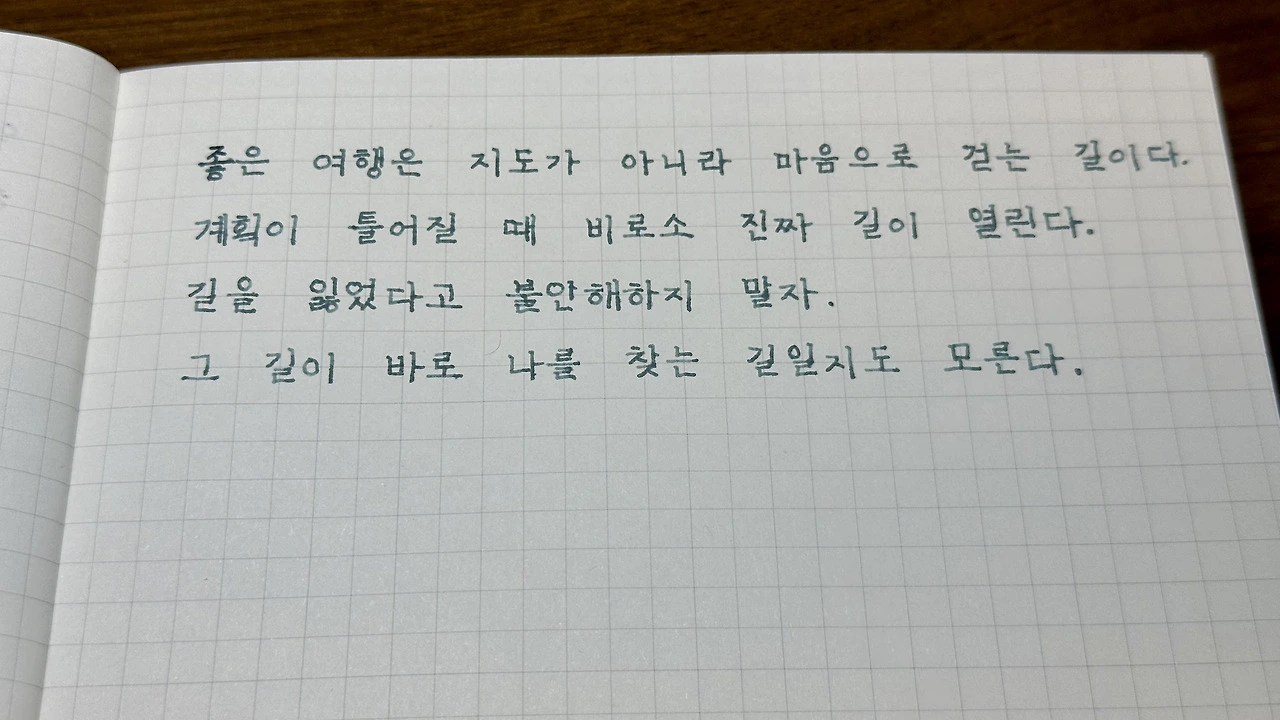 좋은 여행은 지도가 아니라 마음으로 걷는 길이다.
계획이 틀어질 때 비로소 진짜 길이 열린다.
길을 잃었다고 불안해하지 말자.
그 길이 바로 나를 찾는 길일지도 모른다.